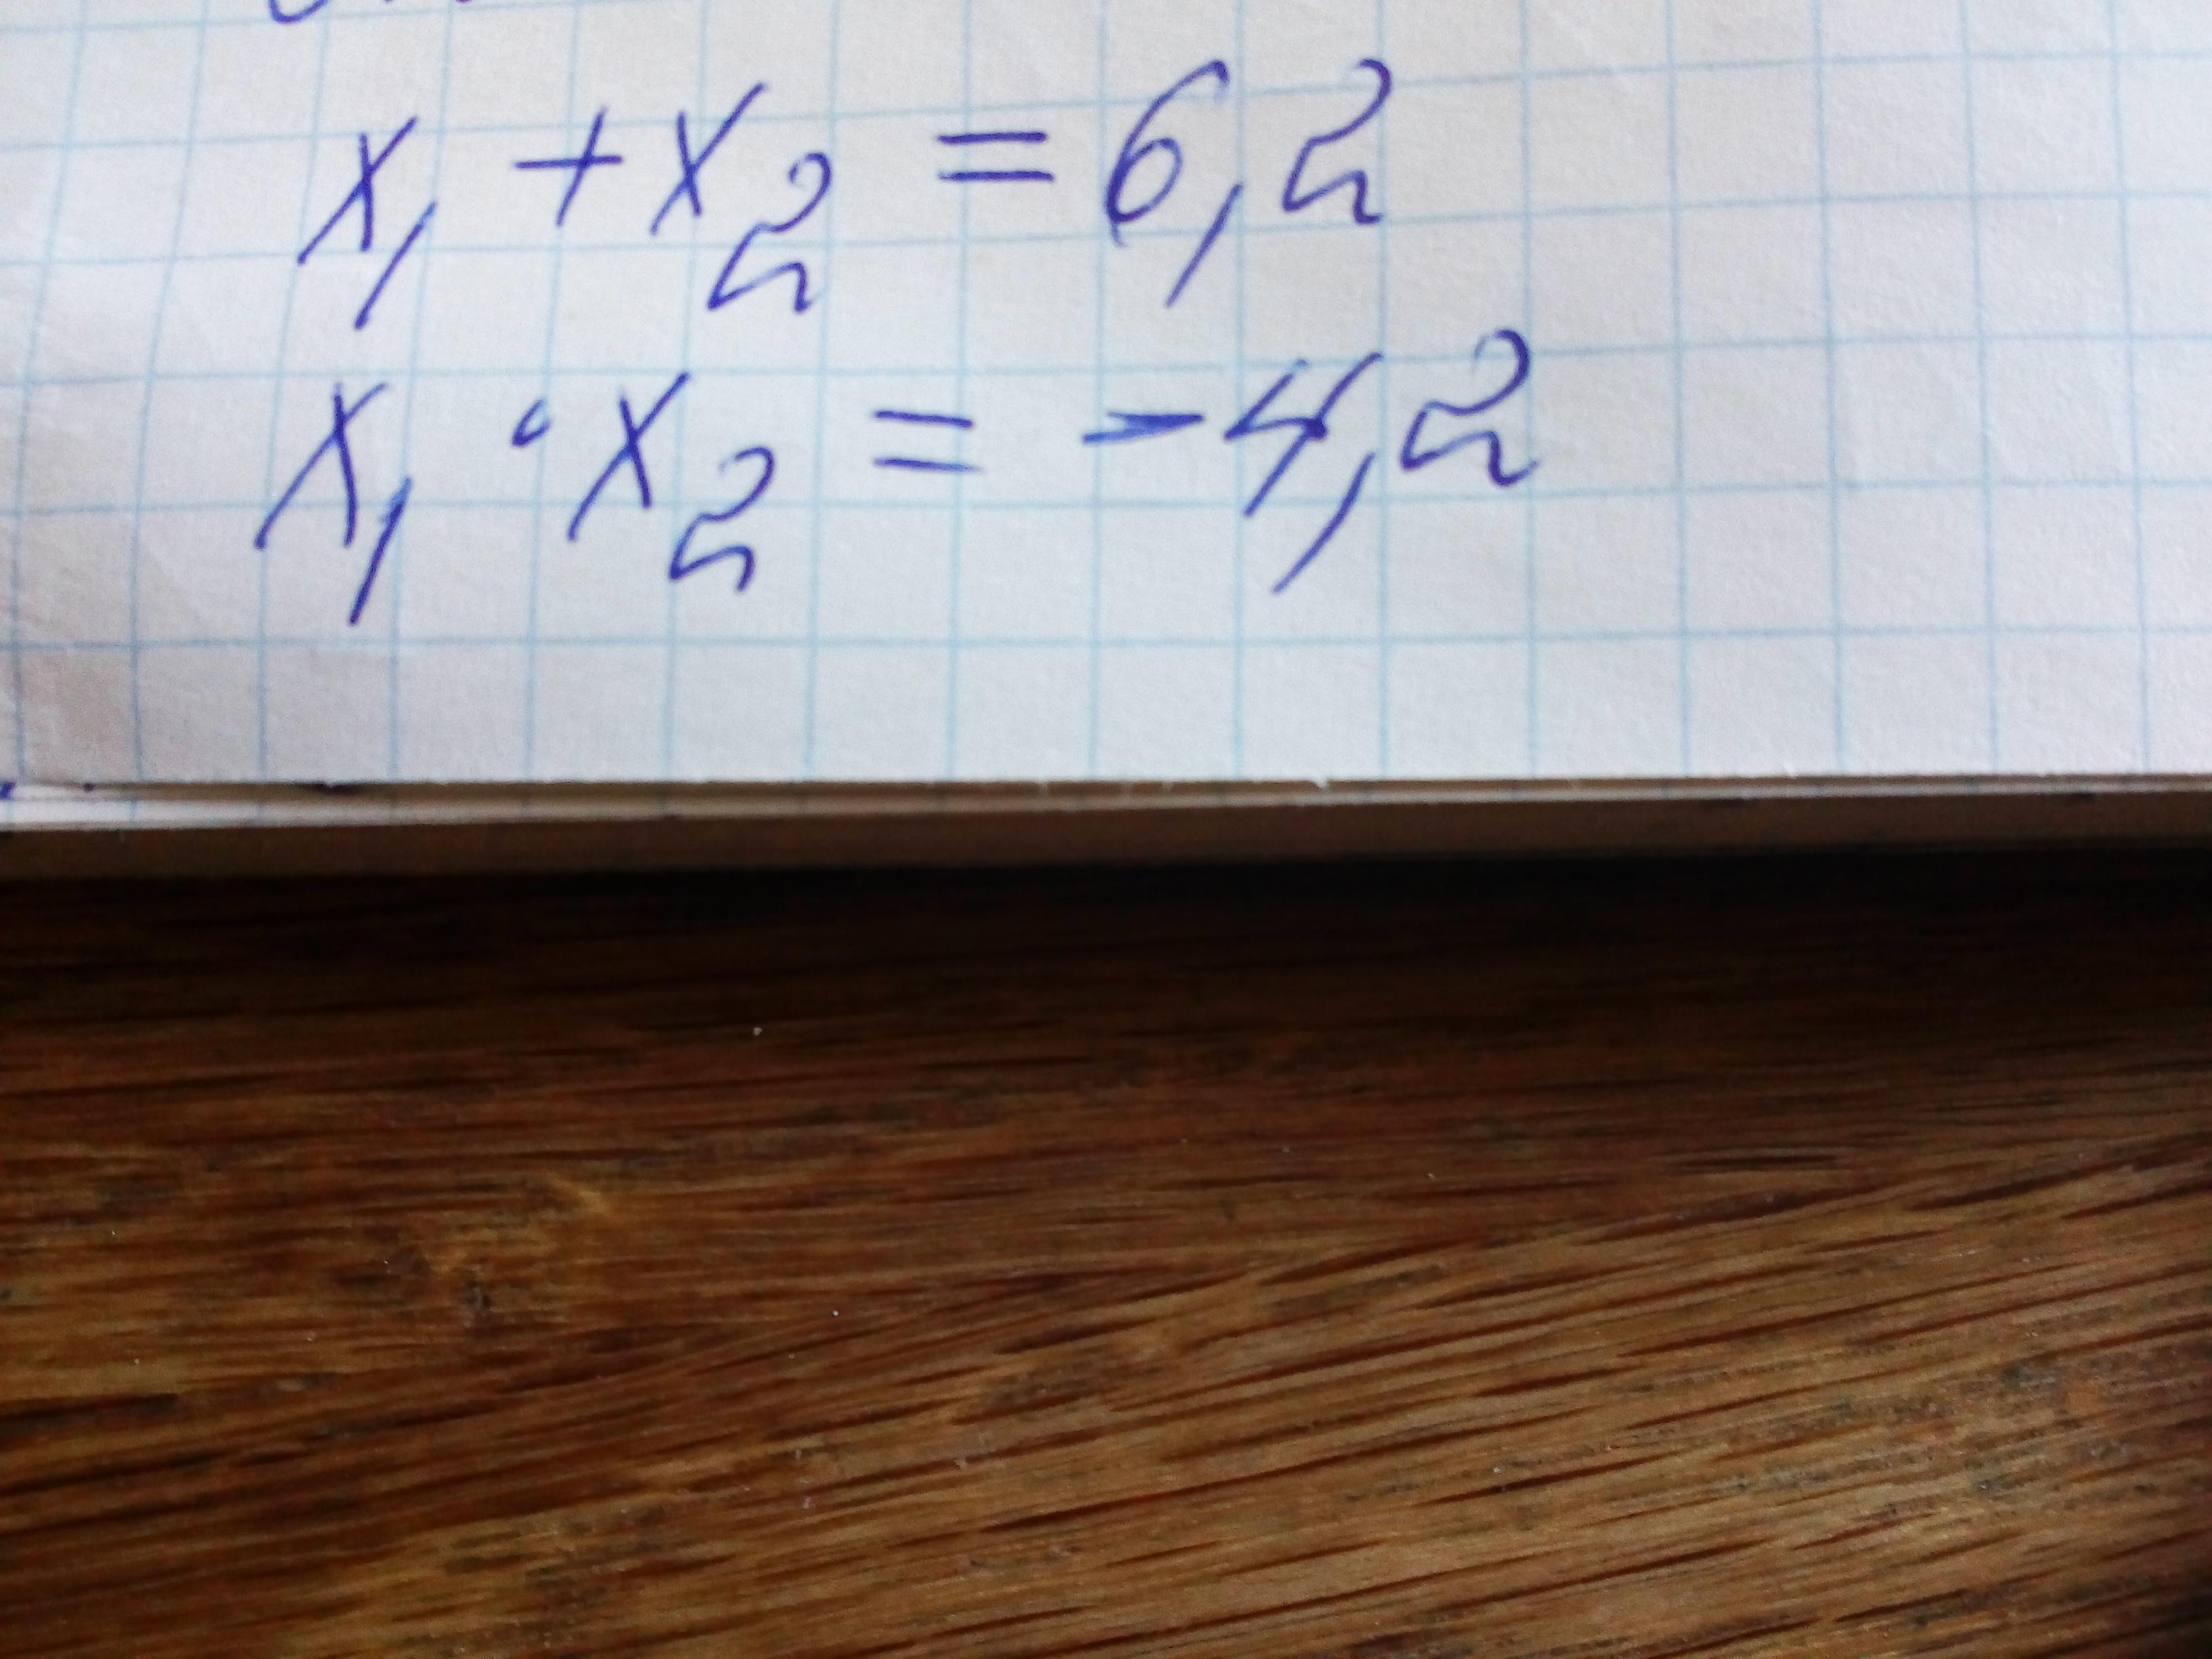 x₁ + x₂ = 6,2
x₁ · x₂ = -4,2